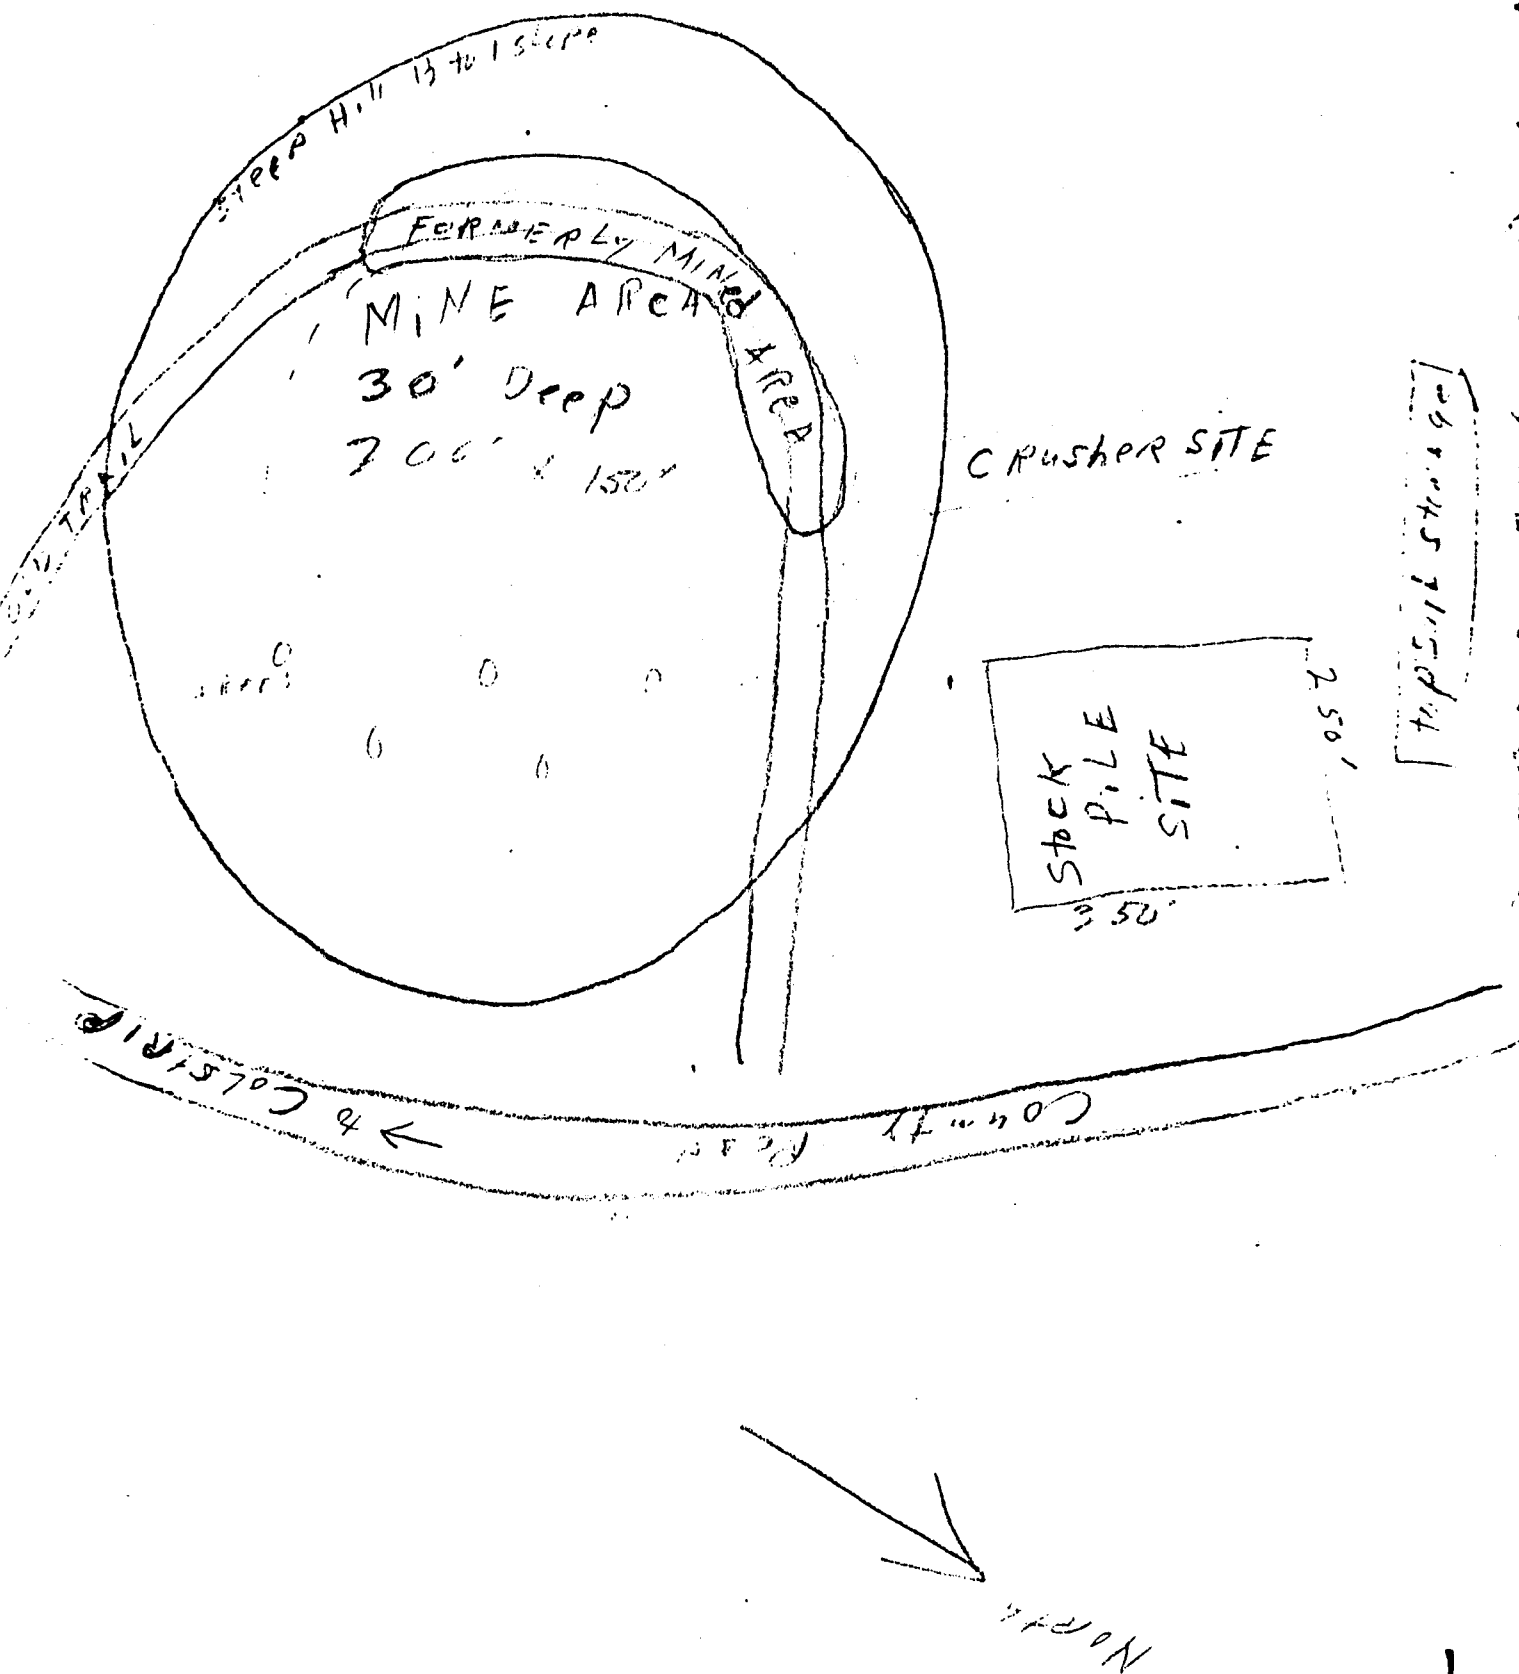 Steep Hill 1½ to 1 slope
FORMERLY MINED AREA
MINE AREA
30' Deep
200' x 150'
OLD TRAIL
CRusheR SITE
topsoil storage
Stock
PiLE
SiTE
250'
350'
County Road
← to COLSTRIP
NORTH